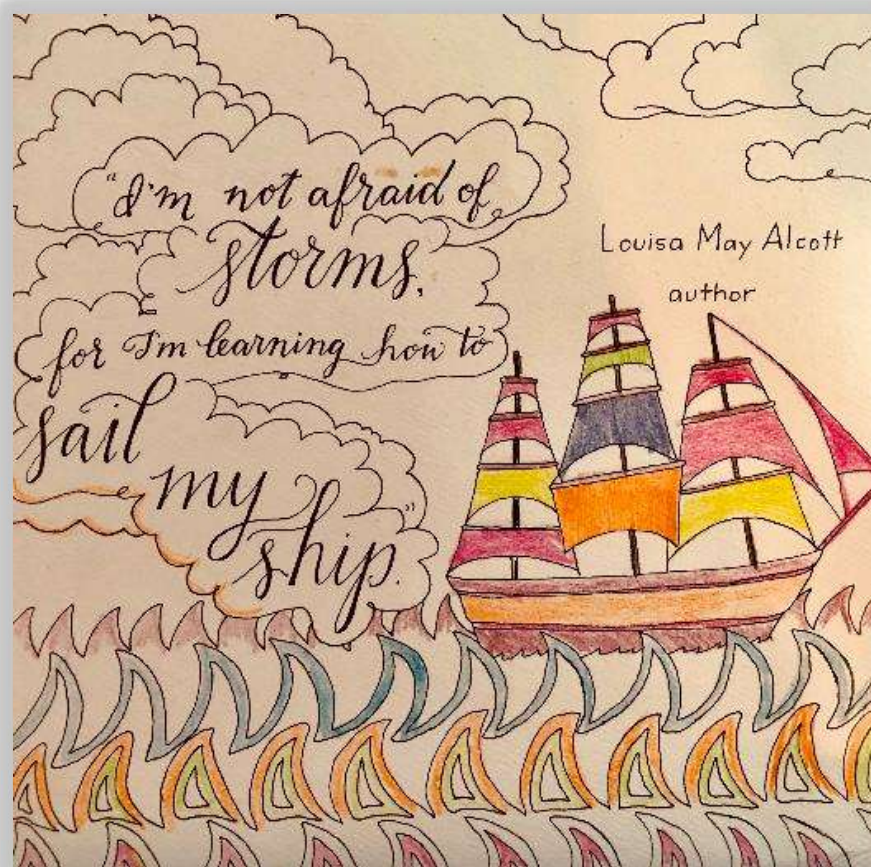 "I'm not afraid of
storms,
for I'm learning how to
sail
my
ship."
Louisa May Alcott
author